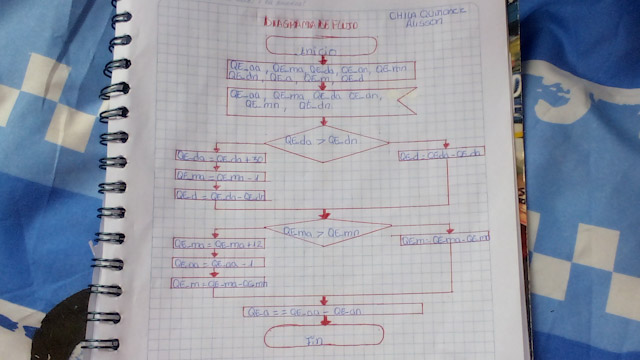 DIAGRAMA DE FLUJO
CHILA QUINONEZ
ALISSON
inicio
QE_aa, QE_ma, QE_da, QE_an, QE_mn
QE_dn, QE_a, QE_m, QE_d
QE_aa, QE_ma, QE_da QE_an,
QE_mn, QE_dn
QE_da > QE_dn
QE_da = QE_da + 30
QE_ma = QE_ma - 1
QE_d = QE_da - QE_dn
QE_d = QE_da - QE_da
QE_ma > QE_mn
QE_ma = QE_ma + 12
QE_aa = QE_aa - 1
QE_m = QE_ma - QE_mn
QE_m = QE_ma - QE_m
QE_a = = QE_aa - QE_an
Fin